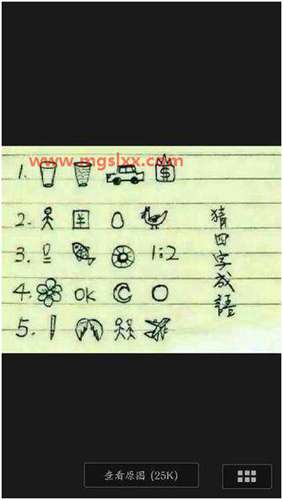 www.mgslxx.com
1.
$
2.
3.
1:2
4.
OK
C
O
5.
猜四字成語
查看原图 (25K)